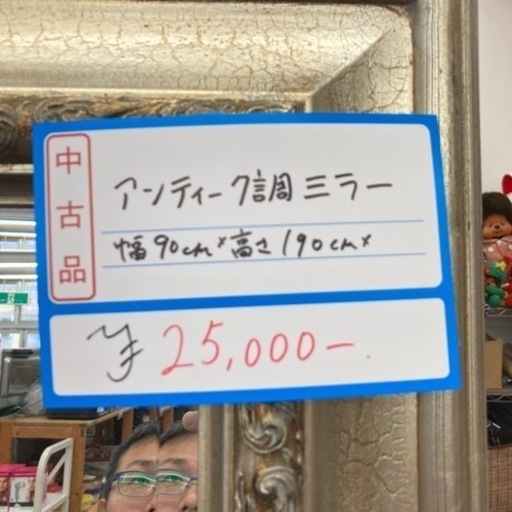 中古品
アンティーク調ミラー
幅90cm×高さ190cm×
¥25,000-.